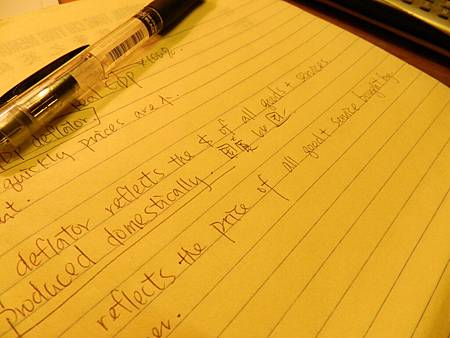 real GDP ×100%.
deflator
quickly prices are ↑.
deflator reflects the $ of all goods + services
produced domestically. 国 in 国
reflects the price of all goods + service bought by